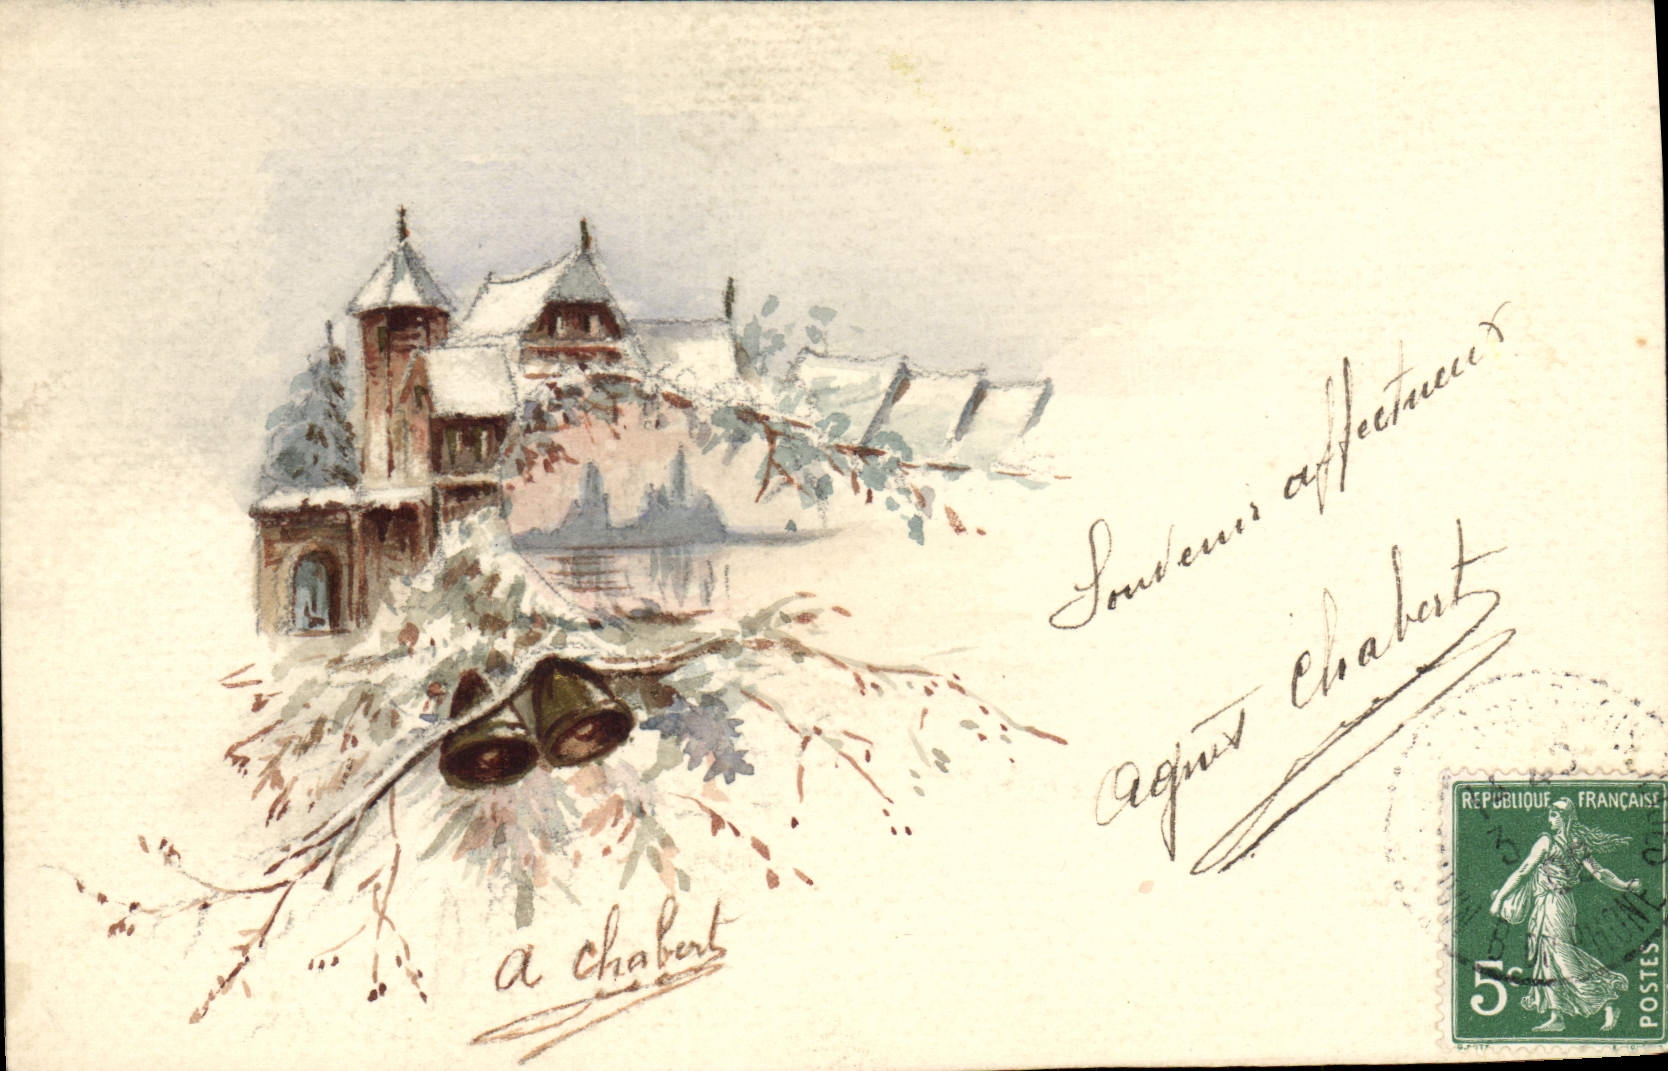 Souvenir affectueux
Agnès Chabert
a chabert
REPUBLIQUE FRANÇAISE
5c
POSTES
RHONE